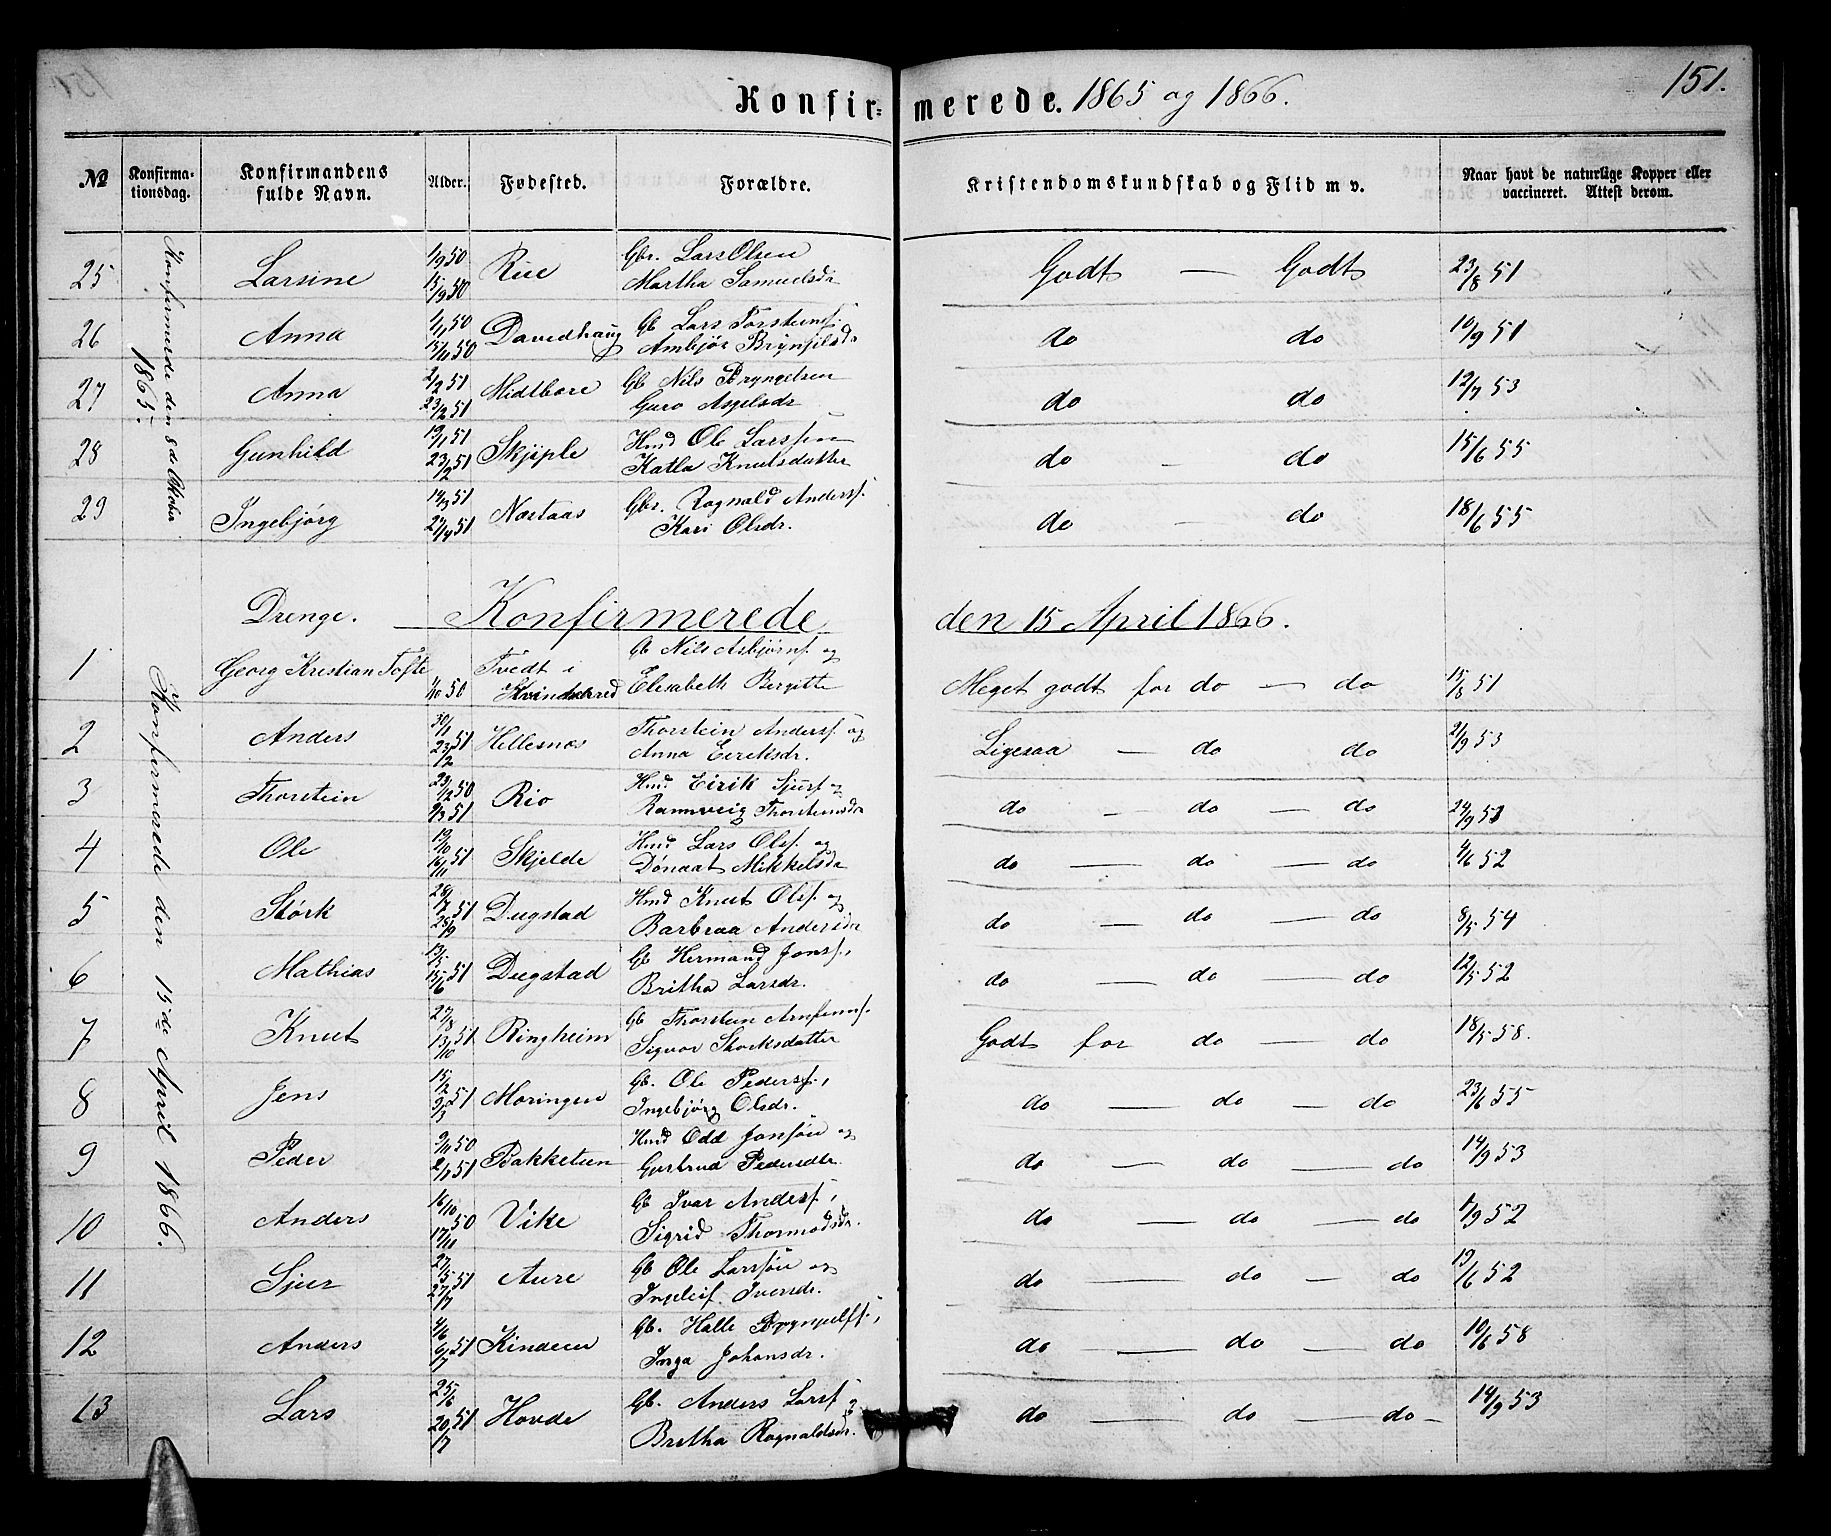 151.
Konfir-merede. 1865 og 1866.
No Konfirmationsdag. Konfirmandens fulde Navn. Alder. Fødested. Forældre. Kristendomskundskab og Flid m v. Naar havt de naturlige Kopper eller vaccineret. Attest derom.
Konfirmerede den 8de Oktober 1865.
25 Larsine 1/9 50 15/9 50 Rue Gbr. Lars Olsen Martha Samuelsdr Godt — Godt 23/8 51
26 Anna 1/11 50 15/11 50 Davidhaug Gb Lars Torsteinsf. Ambjør Brynjelsdr do do 10/9 51
27 Anna 2/2 51 23/2 51 Midtbøre Gb Nils Bryngelsen Guro Aspelsdr do do 12/7 53
28 Gunhild 19/1 51 23/2 51 Skjiple Hmd Ole Larssen Katla Knutsdatter do - do 15/6 55
29 Ingebjørg 51 27/4 51 Nostaas Gbr. Rognald Andersf. Kari Olsdr. do - do 18/6 55
Drenge. — Konfirmerede den 15 April 1866.
Konfirmerede den 15de April 1866.
1 Georg Kristian Tofte 1/10 50 Tvedt i Kvindherred Gb Nils Asbjørnf. og Elisabeth Bergitte Meget godt for do — do 15/8 51
2 Anders 30/1 23/2 51 Hellesnos Thorstein Andersf. og Anna Eiriksdr. Ligesaa — do do 2/9 53
3 Thorstein 29/12 50 9/3 51 Rio Hmd. Eirik Sjursf og Rannveig Thorsteinsdr do - do — do 24/9 51
4 Ole 19/10 16/11 51 Skjelde Hmd Lars Olsf. og Dønaat Mikkelsdr do — do — do 4/6 52
5 Størk 28/7 28/9 51 Dugstad Hmd Knut Olsf. og Barbraa Andersdr do — do — do 8/5 54
6 Mathias 13/5 15/6 51 Dugstad Gb Hermand Jonsf., Britha Larsdr. do — do — do 12/5 52
7 Knut 27/8 13/10 51 Ringheim Gb Thorstein Arnfinnsf. Sigvor Storksdatter Godt for do — do 18/5 58.
8 Jens 15/2 9/3 51 Moringen Gb. Ole Pedersf., Ingebjørg Olsdr. do — do — do 23/6 55
9 Peder 9/11 50 2/2 51 Bakketun Hmd Odd Jonsøn og Gurbrud Pedersdtr. do — do — do 14/9 53
10 Anders 16/10 17/11 50 Vike Gb Ivar Andersf., Sigrid Thormodsdr. do — do — do 1/9 52
11 Sjur 27/5 27/7 51 Aure Gb Ole Larssøn og Ingeleif Iversdr. do — do — do 19/6 52
12 Anders 4/6 6/7 51 Kinden Gb. Halle Bryngelsf., Inga Johansdr. do — do — do 10/6 58
13 Lars 25/6 20/7 51 Hovde Gb. Anders Larsf og Britha Rognaldsdr. do — do — do - 14/9 53